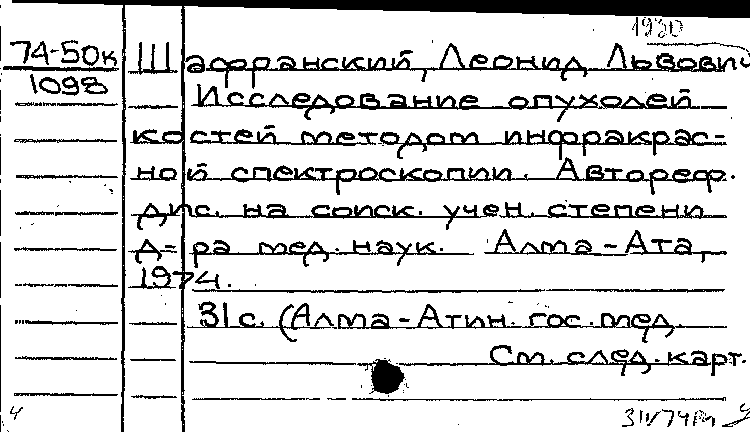 1930
74-50к Шафранский, Леонид Львович
1098 Исследование опухолей
костей методом инфракрас-
ной спектроскопии. Автореф.
дис. на соиск. учен. степени
д-ра мед. наук. Алма-Ата,
1974.
31 с. (Алма-Атин. гос. мед.
См. след. карт.